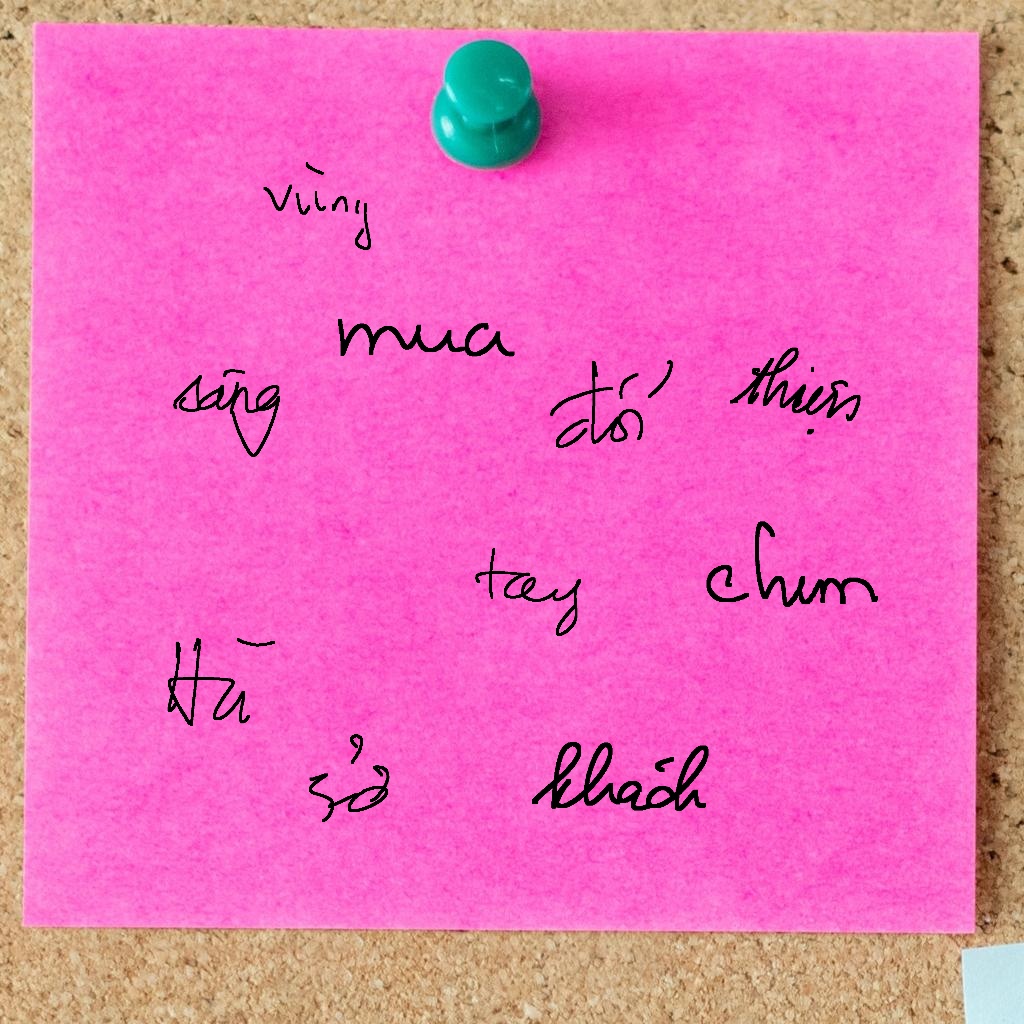 vùng
mua
sáng đối thiện
tay chim
Hà
sở khách